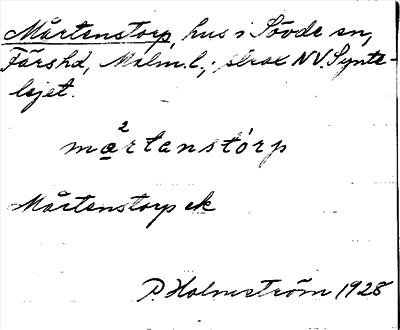 Mårtenstorp, hus i Sövde sn,
Färshd, Malm.l.; strax NV. Synte-
lejet.
mårtanstórp
Mårtenstorp ek
P. Holmström 1928